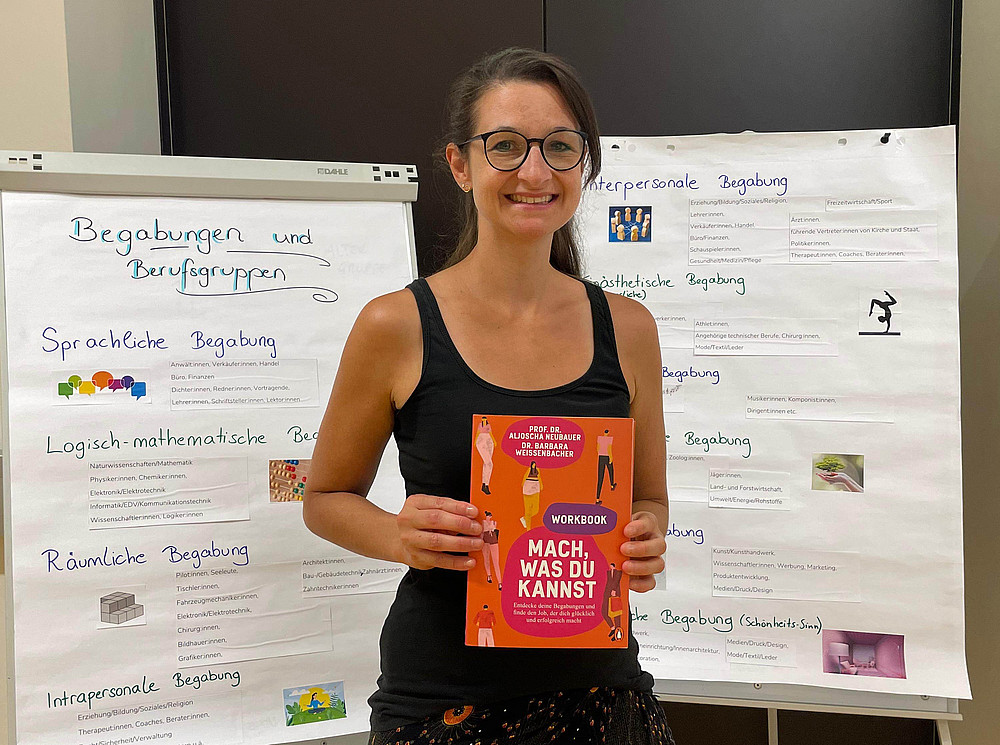 DAHLE
Begabungen und
Berufsgruppen
Sprachliche Begabung
Anwält:innen, Verkäufer:innen, Handel
Büro, Finanzen
Dichter:innen, Redner:innen, Vortragende,
Lehrer:innen, Schriftsteller:innen, Lektor:innen
Logisch-mathematische Beg
Naturwissenschaften/Mathematik
Physiker:innen, Chemiker:innen,
Elektronik/Elektrotechnik
Informatik/EDV/Kommunikationstechnik
Wissenschaftler:innen, Logiker:innen
Räumliche Begabung
Pilot:innen, Seeleute,
Tischler:innen,
Fahrzeugmechaniker:innen,
Elektronik/Elektrotechnik,
Chirurg:innen,
Bildhauer:innen,
Grafiker:innen,
Architekt:innen,
Bau-/Gebäudetechnik,Zahnärzt:innen,
Zahntechnikerinnen
Intrapersonale Begabung
Erziehung/Bildung/Soziales/Religion
Therapeut:innen, Coaches, Berater:innen,
/Sicherheit/Verwaltung
PROF. DR.
ALJOSCHA NEUBAUER
DR. BARBARA
WEISSENBACHER
WORKBOOK
MACH,
WAS DU
KANNST
Entdecke deine Begabungen und
finde den Job, der dich glücklich
und erfolgreich macht
Interpersonale Begabung
Erziehung/Bildung/Soziales/Religion,
Lehrer:innen,
Verkäufer:innen, Handel
Büro/Finanzen,
Schauspieler:innen,
Gesundheit/Medizin/Pflege
Freizeitwirtschaft/Sport
Ärzt:innen,
führende Vertreter:innen von Kirche und Staat,
Politiker:innen,
Therapeut:innen, Coaches, Berater:innen,
inästhetische Begabung
liche)
erker:innen,
Athlet:innen,
Angehörige technischer Berufe, Chirurg:innen,
Mode/Textil/Leder
Begabung
Musiker:innen, Komponist:innen,
Dirigent:innen etc.
he Begabung
Zoolog:innen,
Jäger:innen,
Land- und Forstwirtschaft,
Umwelt/Energie/Rohstoffe
abung
Kunst/Kunsthandwerk,
Wissenschaftler:innen, Werbung, Marketing,
Produktentwicklung,
Medien/Druck/Design
che Begabung (Schönheits-Sinn)
dwerk,
einrichtung/Innenarchitektur,
Medien/Druck/Design,
Mode/Textil/Leder